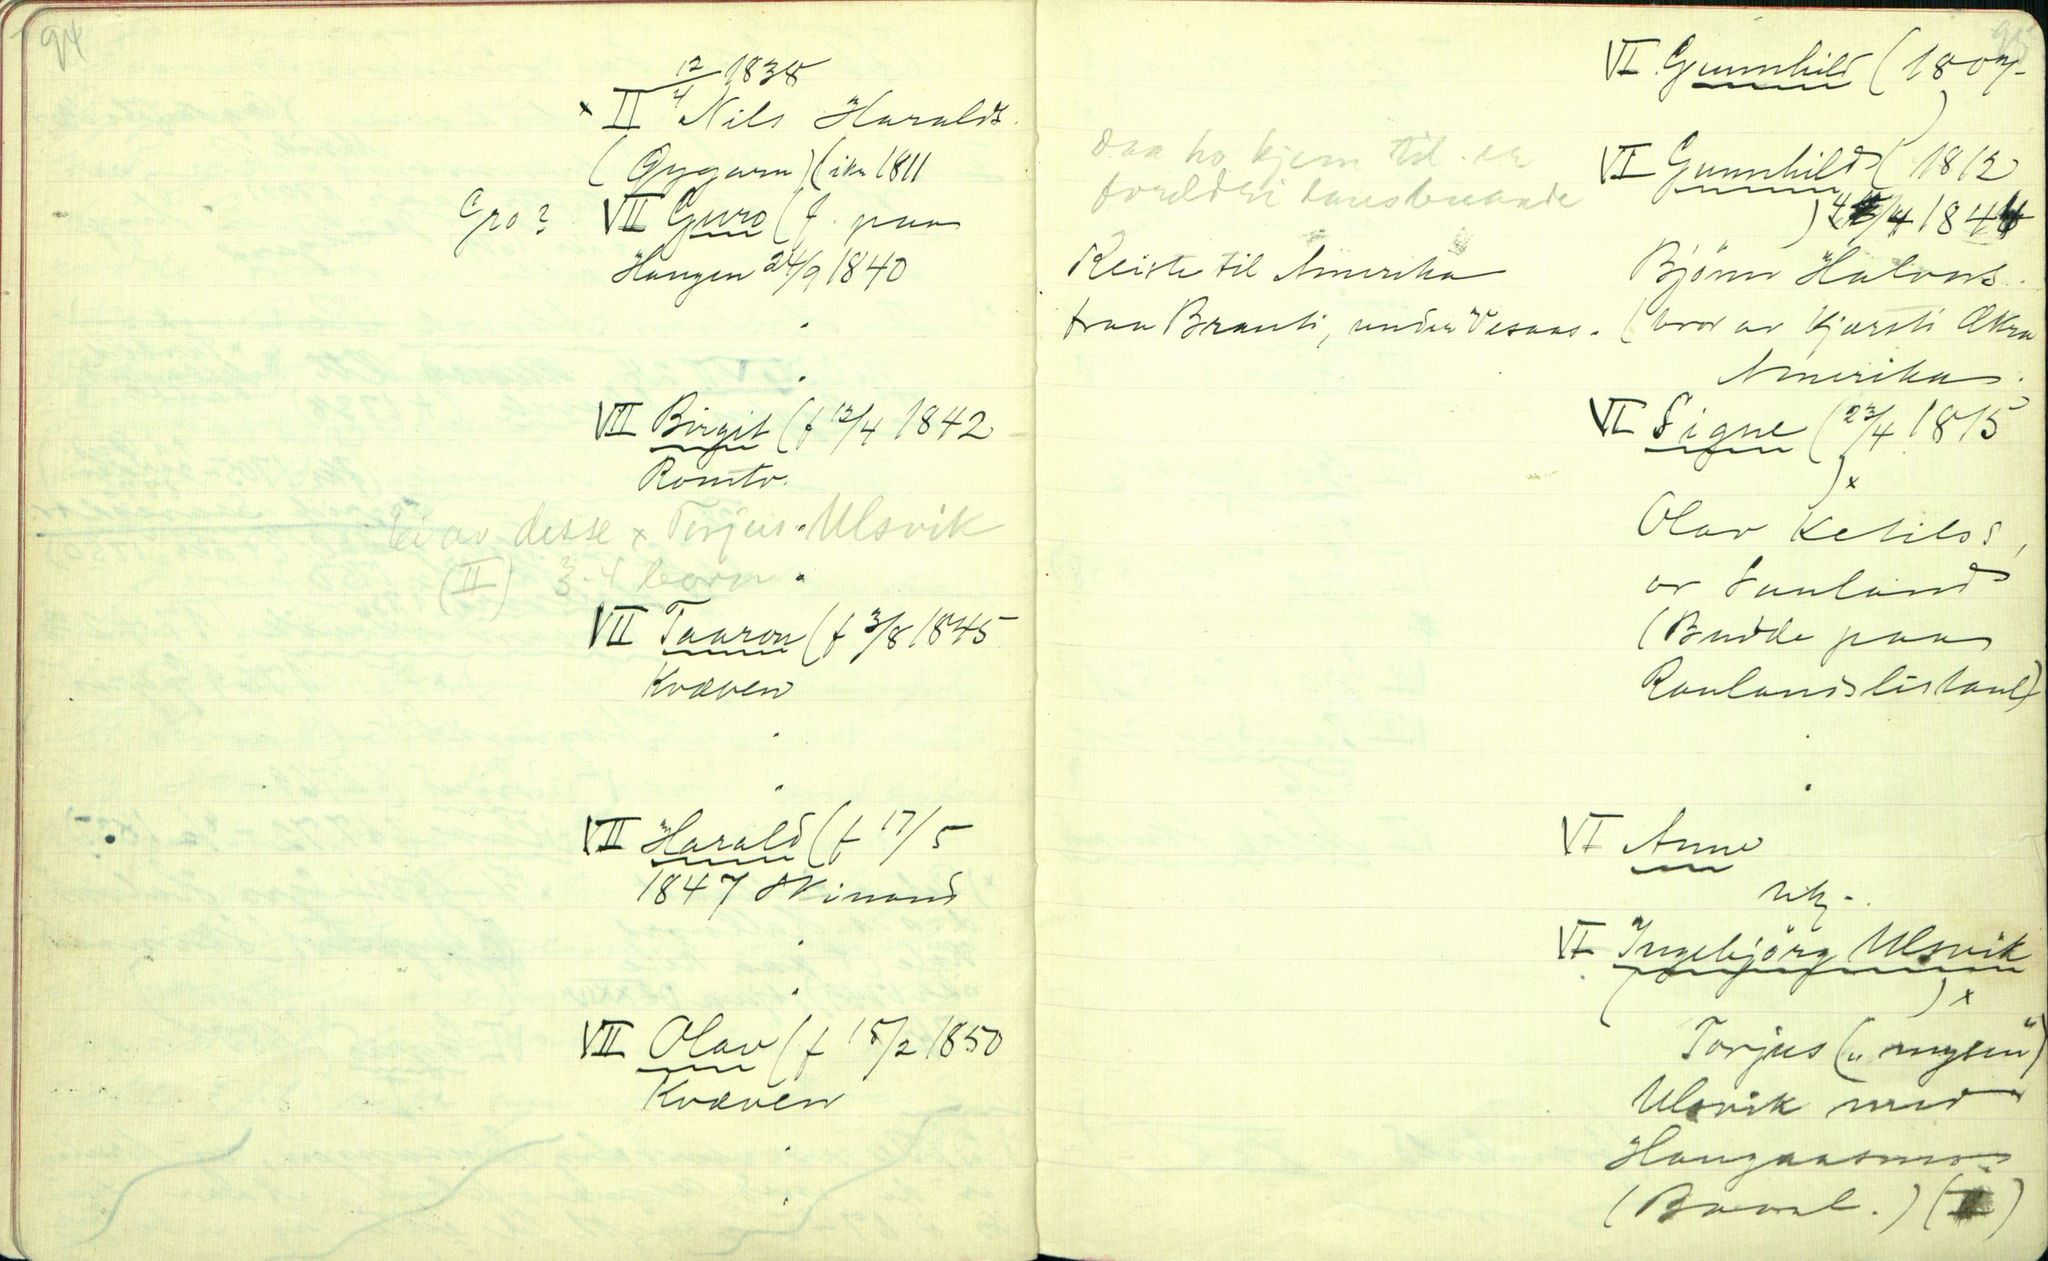 94
12/4 1838
x II Nils Haralds.
(Gygarn) (ikr 1811
Gro? VII Guro (f. paa
Haugen 24/9 1840
VII Birgit (f 12/4 1842
Romtv.
Ei av desse x Torjus Ulsvik
(II) 3-4 born
VII Taaron (f 3/8 1845
Kvæven
VII Harald (f 17/5
1847 Vinand
VII Olav (f 15/2 1850
Kvæven
95
VI Gunnhild (1807-
)
Daa ho kjem til er
foreldri
VI Gunnhild (1812
) 1844
Reiste til Amerika
fraa Brauti, under Vesaas.
Bjönn Halvors.
(bror av Kjersti Økra
Amerika.
VI Signe (23/4 1815
) x
Olav Ketilss,
or Sauland
(Budde paa
Raulandslistaul)
VI Anne
ug.
VI Ingebjörg Ulsvik
( ) x
Torjus („mysen")
Ulsvik med
Haugaasmo
(II)